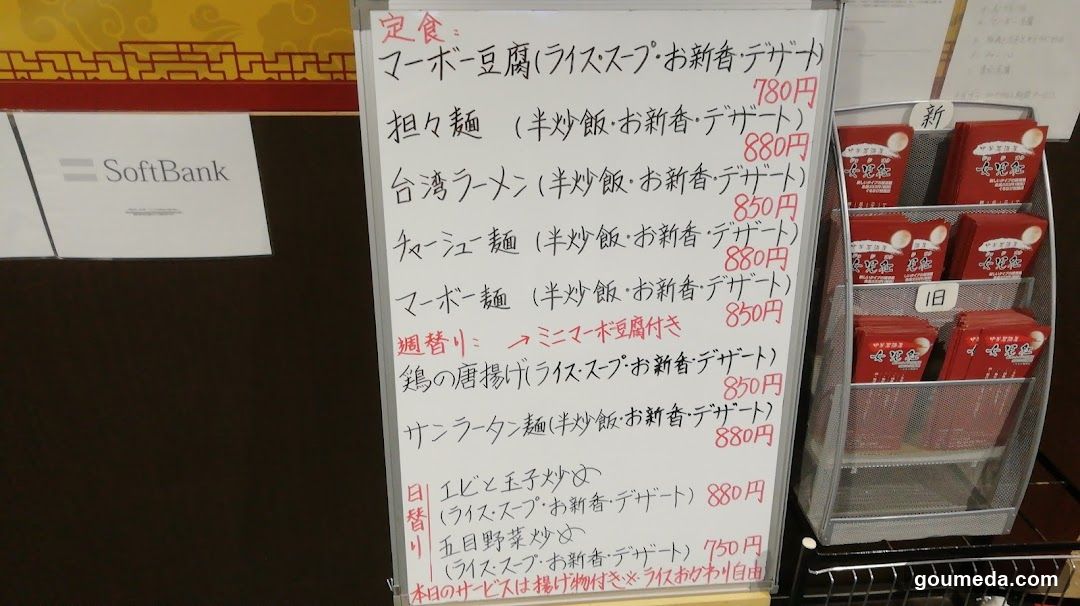 定食：
マーボー豆腐(ライス・スープ・お新香・デザート)
780円
担々麺 (半炒飯・お新香・デザート)
880円
台湾ラーメン(半炒飯・お新香・デザート)
850円
チャーシュー麺 (半炒飯・お新香・デザート)
880円
マーボー麺 (半炒飯・お新香・デザート)
850円
週替り： →ミニマーボ豆腐付き
鶏の唐揚げ(ライス・スープ・お新香・デザート)
850円
サンラータン麺(半炒飯・お新香・デザート)
880円
日替り
エビと玉子炒め
(ライス・スープ・お新香・デザート) 880円
五目野菜炒め
(ライス・スープ・お新香・デザート) 750円
本日のサービスは揚げ物付き※ライスおかわり自由
SoftBank
新
旧
goumeda.com